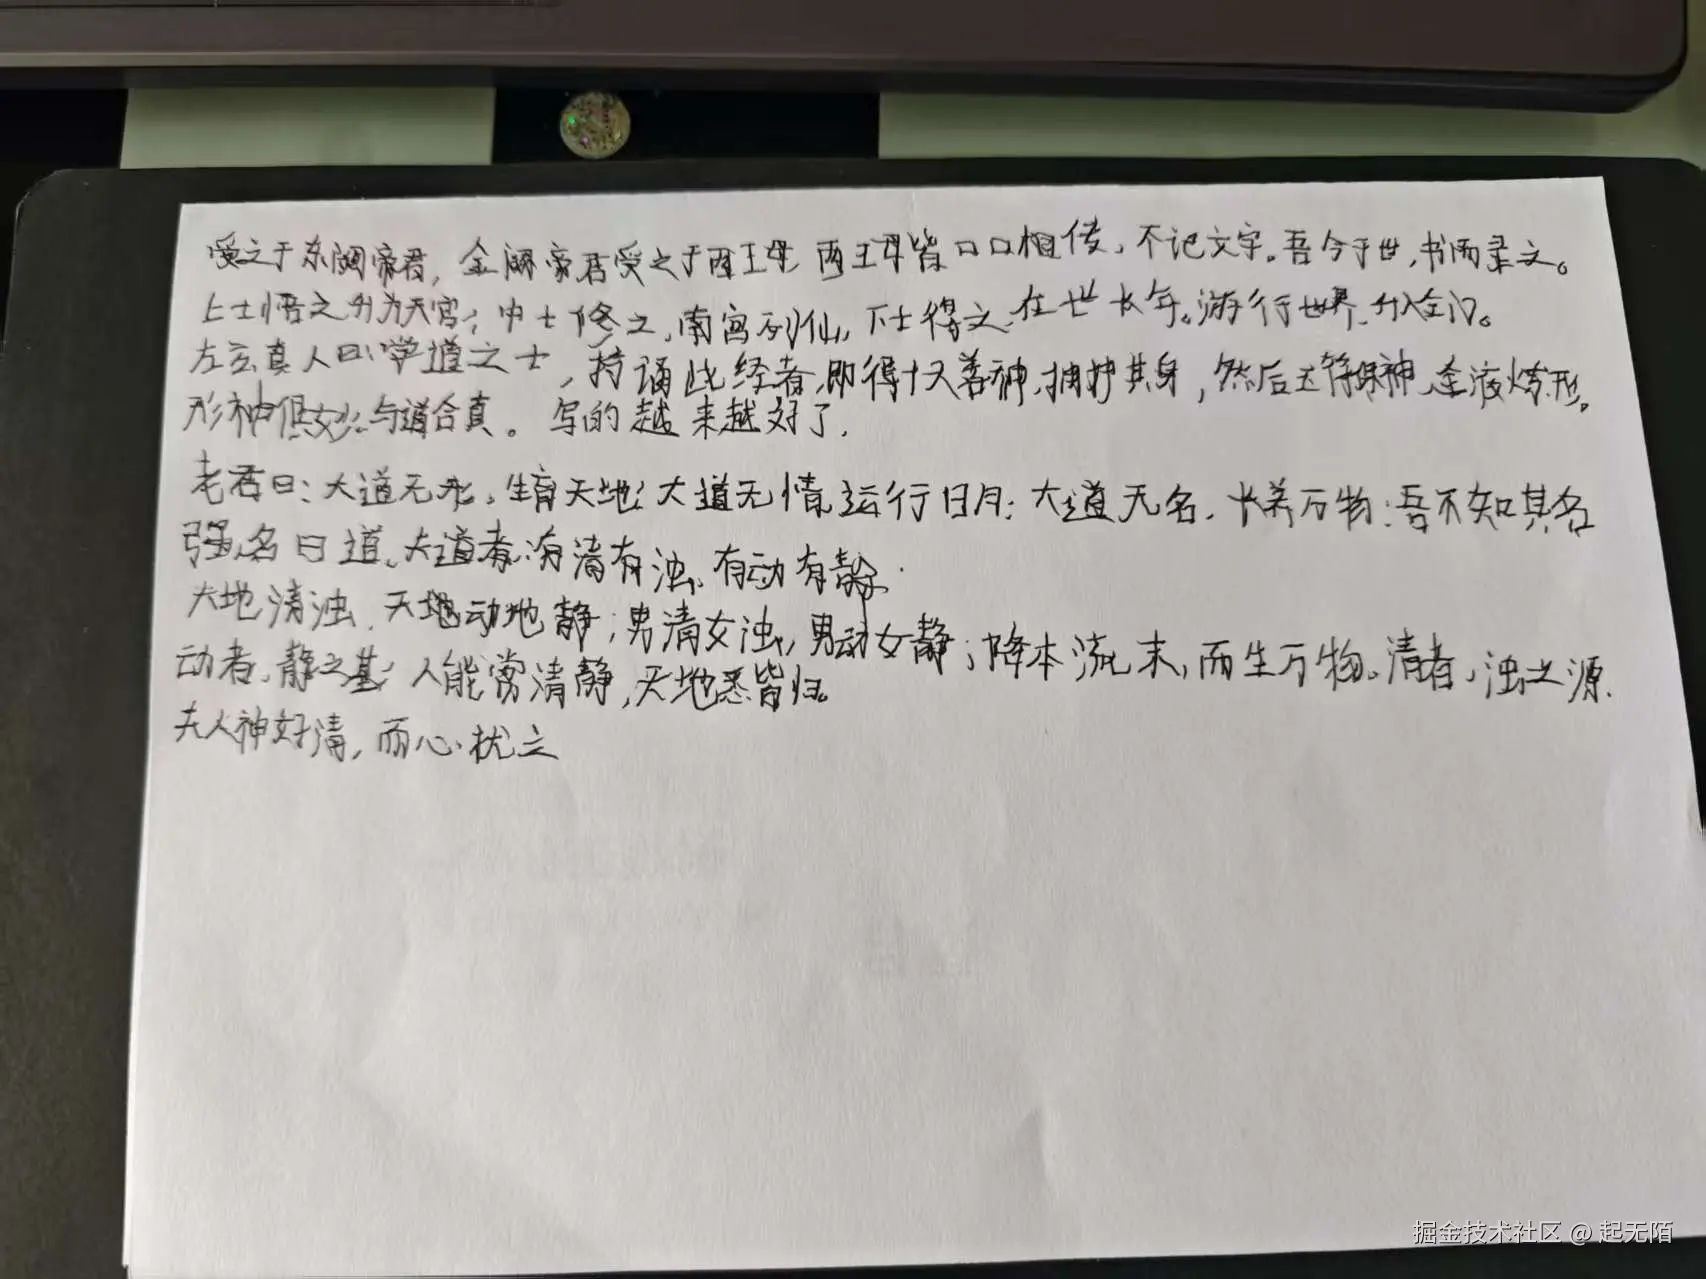 受之于东阙帝君，金阙帝君受之于西王母，西王母皆口口相传，不记文字。吾今于世，书而录之。
上士悟之，升为天官；中士修之，南宫列仙，下士得之，在世长年。游行世界，升入金门。
左玄真人曰：学道之士，持诵此经者，即得十天善神，拥护其身，然后玉符保神，金液炼形。
形神俱妙，与道合真。写的越来越好了。
老君曰：大道无形，生育天地；大道无情，运行日月；大道无名，长养万物；吾不知其名
强名曰道。大道者，有清有浊，有动有静。
天地清浊，天地动地静；男清女浊，男动女静；降本流末，而生万物。清者，浊之源，
动者，静之基；人能常清静，天地悉皆归。
夫人神好清，而心扰之
掘金技术社区 @ 起无陌